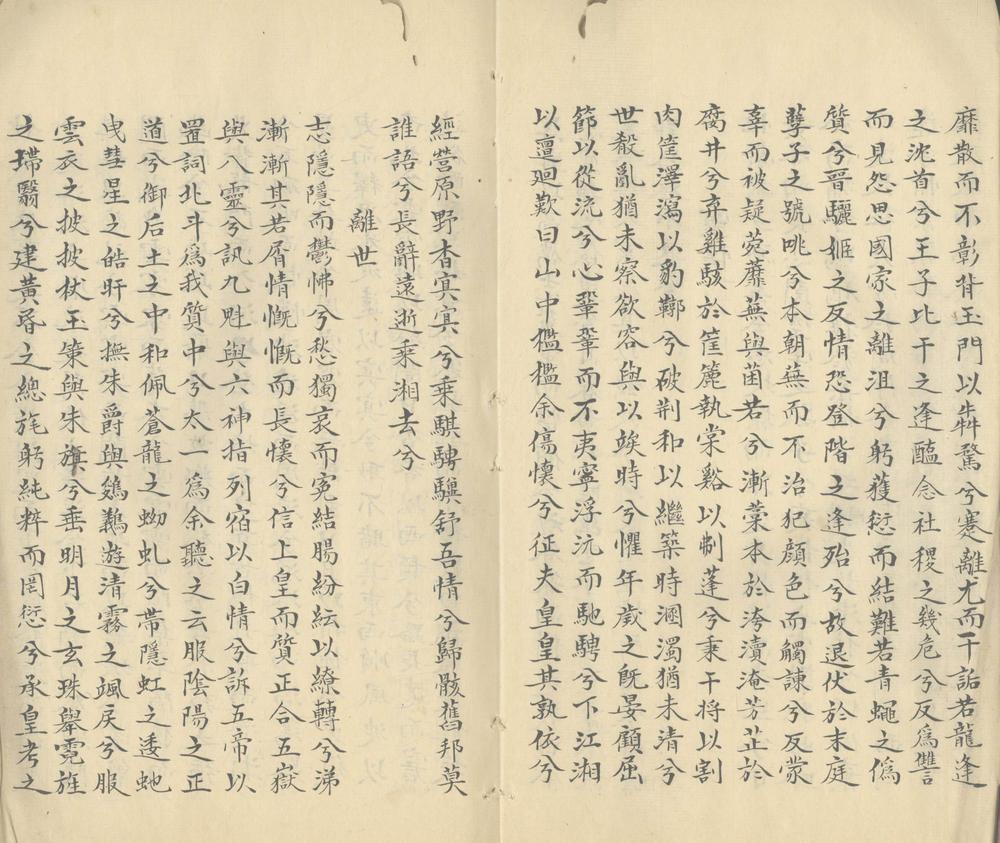 靡散而不彰背玉門以犇騖兮蹇離尤而干詬若龍逢
之沈首兮王子比干之逢醢念社稷之幾危兮反爲讐
而見怨思國家之離沮兮躬獲愆而結難若青蠅之僞
質兮晉驪姬之反情恐登階之逢殆兮故退伏於末庭
孽子之號咷兮本朝蕪而不治犯顏色而觸諫兮反蒙
辜而被疑菀蘼蕪與菌若兮漸藁本於洿瀆淹芳芷於
腐井兮弃雞駭於筐簏執棠谿以刜蓬兮秉干将以割
肉筐澤瀉以豹鞹兮破荆和以繼築時溷濁猶未清兮
世殽亂猶未察欲容與以竢時兮懼年歲之既晏顧屈
節以從流兮心鞏鞏而不夷寧浮沅而馳騁兮下江湘
以邅迴歎曰山中檻檻余傷懷兮征夫皇皇其孰依兮
經營原野杳㝠㝠兮乘騏騁驥舒吾情兮歸骸舊邦莫
誰語兮長辭遠逝乘湘去兮
離世
志隱隱而鬱怫兮愁獨哀而寃結腸紛紜以繚轉兮涕
漸漸其若屑情慨慨而長懷兮信上皇而質正合五嶽
與八靈兮訊九鬿與六神指列宿以白情兮訴五帝以
置詞北斗爲我質中兮太一爲余聽之云服陰陽之正
道兮御后土之中和佩蒼龍之蚴虬兮帶隱虹之逶虵
曳彗星之皓旰兮撫朱爵與鵔鸃遊清霧之颯戾兮服
雲衣之披披杖玉策與朱旗兮垂明月之玄珠舉霓旌
之墆翳兮建黄昏之總旄躬純粹而罔愆兮承皇考之